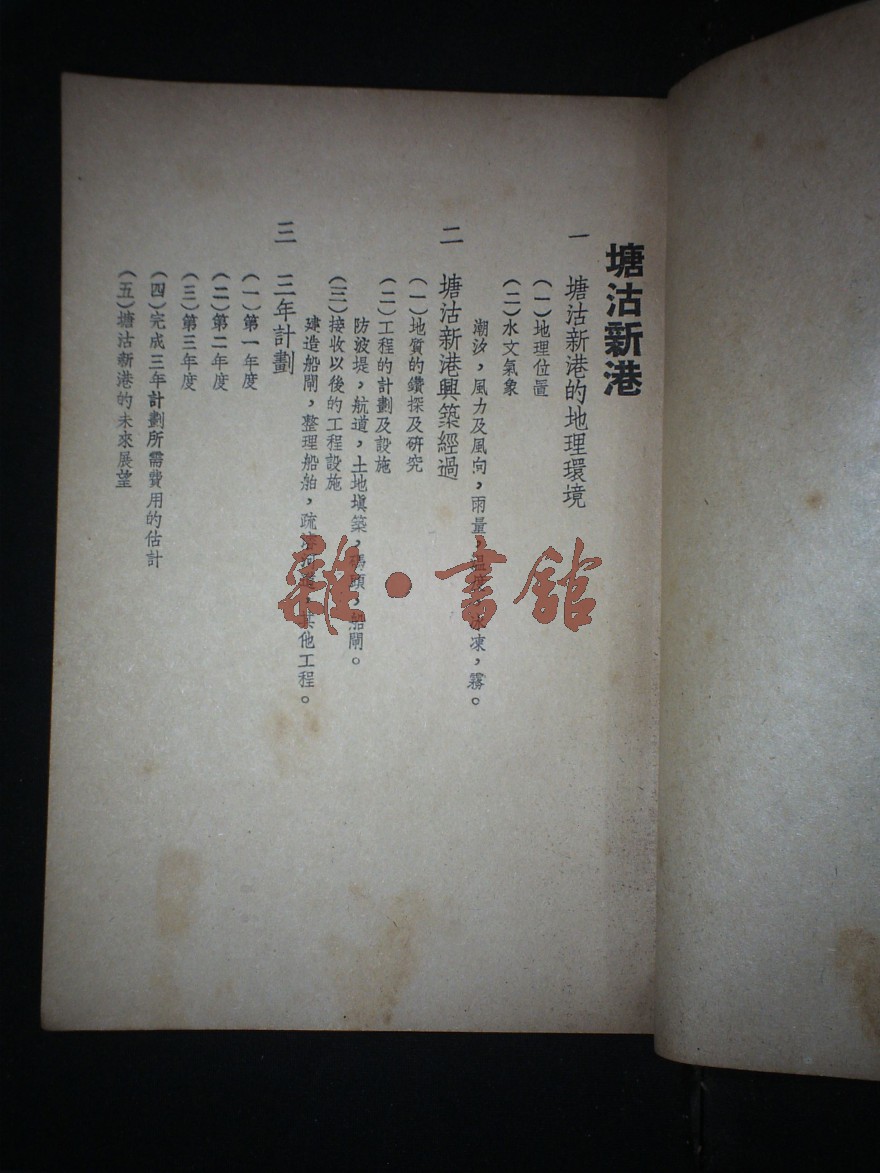 塘沽新港
一 塘沽新港的地理環境
（一）地理位置
（二）水文氣象
潮汐，風力及風向，雨量，溫度，冰凍，霧。
二 塘沽新港興築經過
（一）地質的鑽探及研究
（二）工程的計劃及設施
防波堤，航道，土地塡築，碼頭，船閘。
（三）接收以後的工程設施
建造船閘，整理船舶，疏浚河道，其他工程。
三 三年計劃
（一）第一年度
（二）第二年度
（三）第三年度
（四）完成三年計劃所需費用的估計
（五）塘沽新港的未來展望
雜·書館